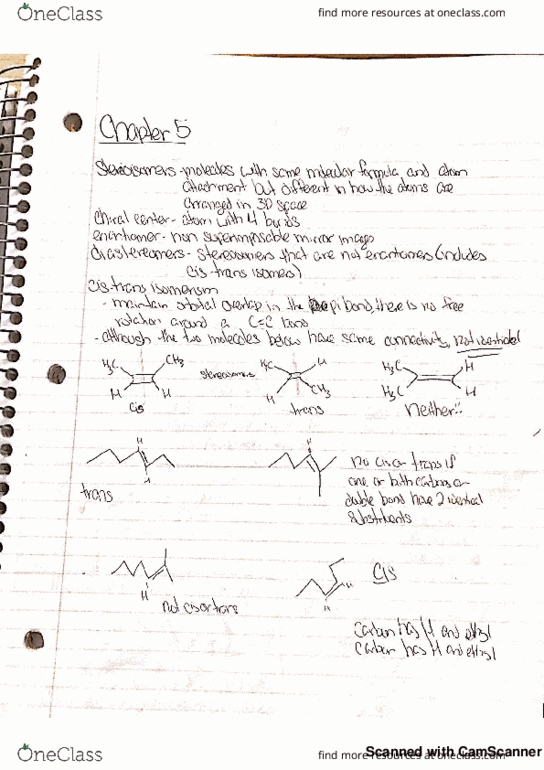 OneClass
find more resources at oneclass.com
Chapter 5
Stereoisomers - molecules with same molecular formula, and atom
attachment but different in how the atoms are
arranged in 3D space
Chiral center - atom with 4 bonds
enantiomer - non superimposable mirror images
diastereomers - stereoisomers that are not enantiomers (includes
cis trans isomers)
cis trans isomerism
- maintain orbital overlap in the pi bond, there is no free
rotation around a C=C bond
- although the two molecules below have same connectivity, not identical
H3C CH3 stereoisomers H3C H H3C H
H H H CH3 H3C H
cis trans neither!!
H H
H
trans
no cis or trans if
one or both carbons on
double bond have 2 identical
substituents
H
not cis or trans
H
H
Cis
carbon has H and ethyl
carbon has H and ethyl
OneClass
find more resources at oneclass.com
Scanned with CamScanner